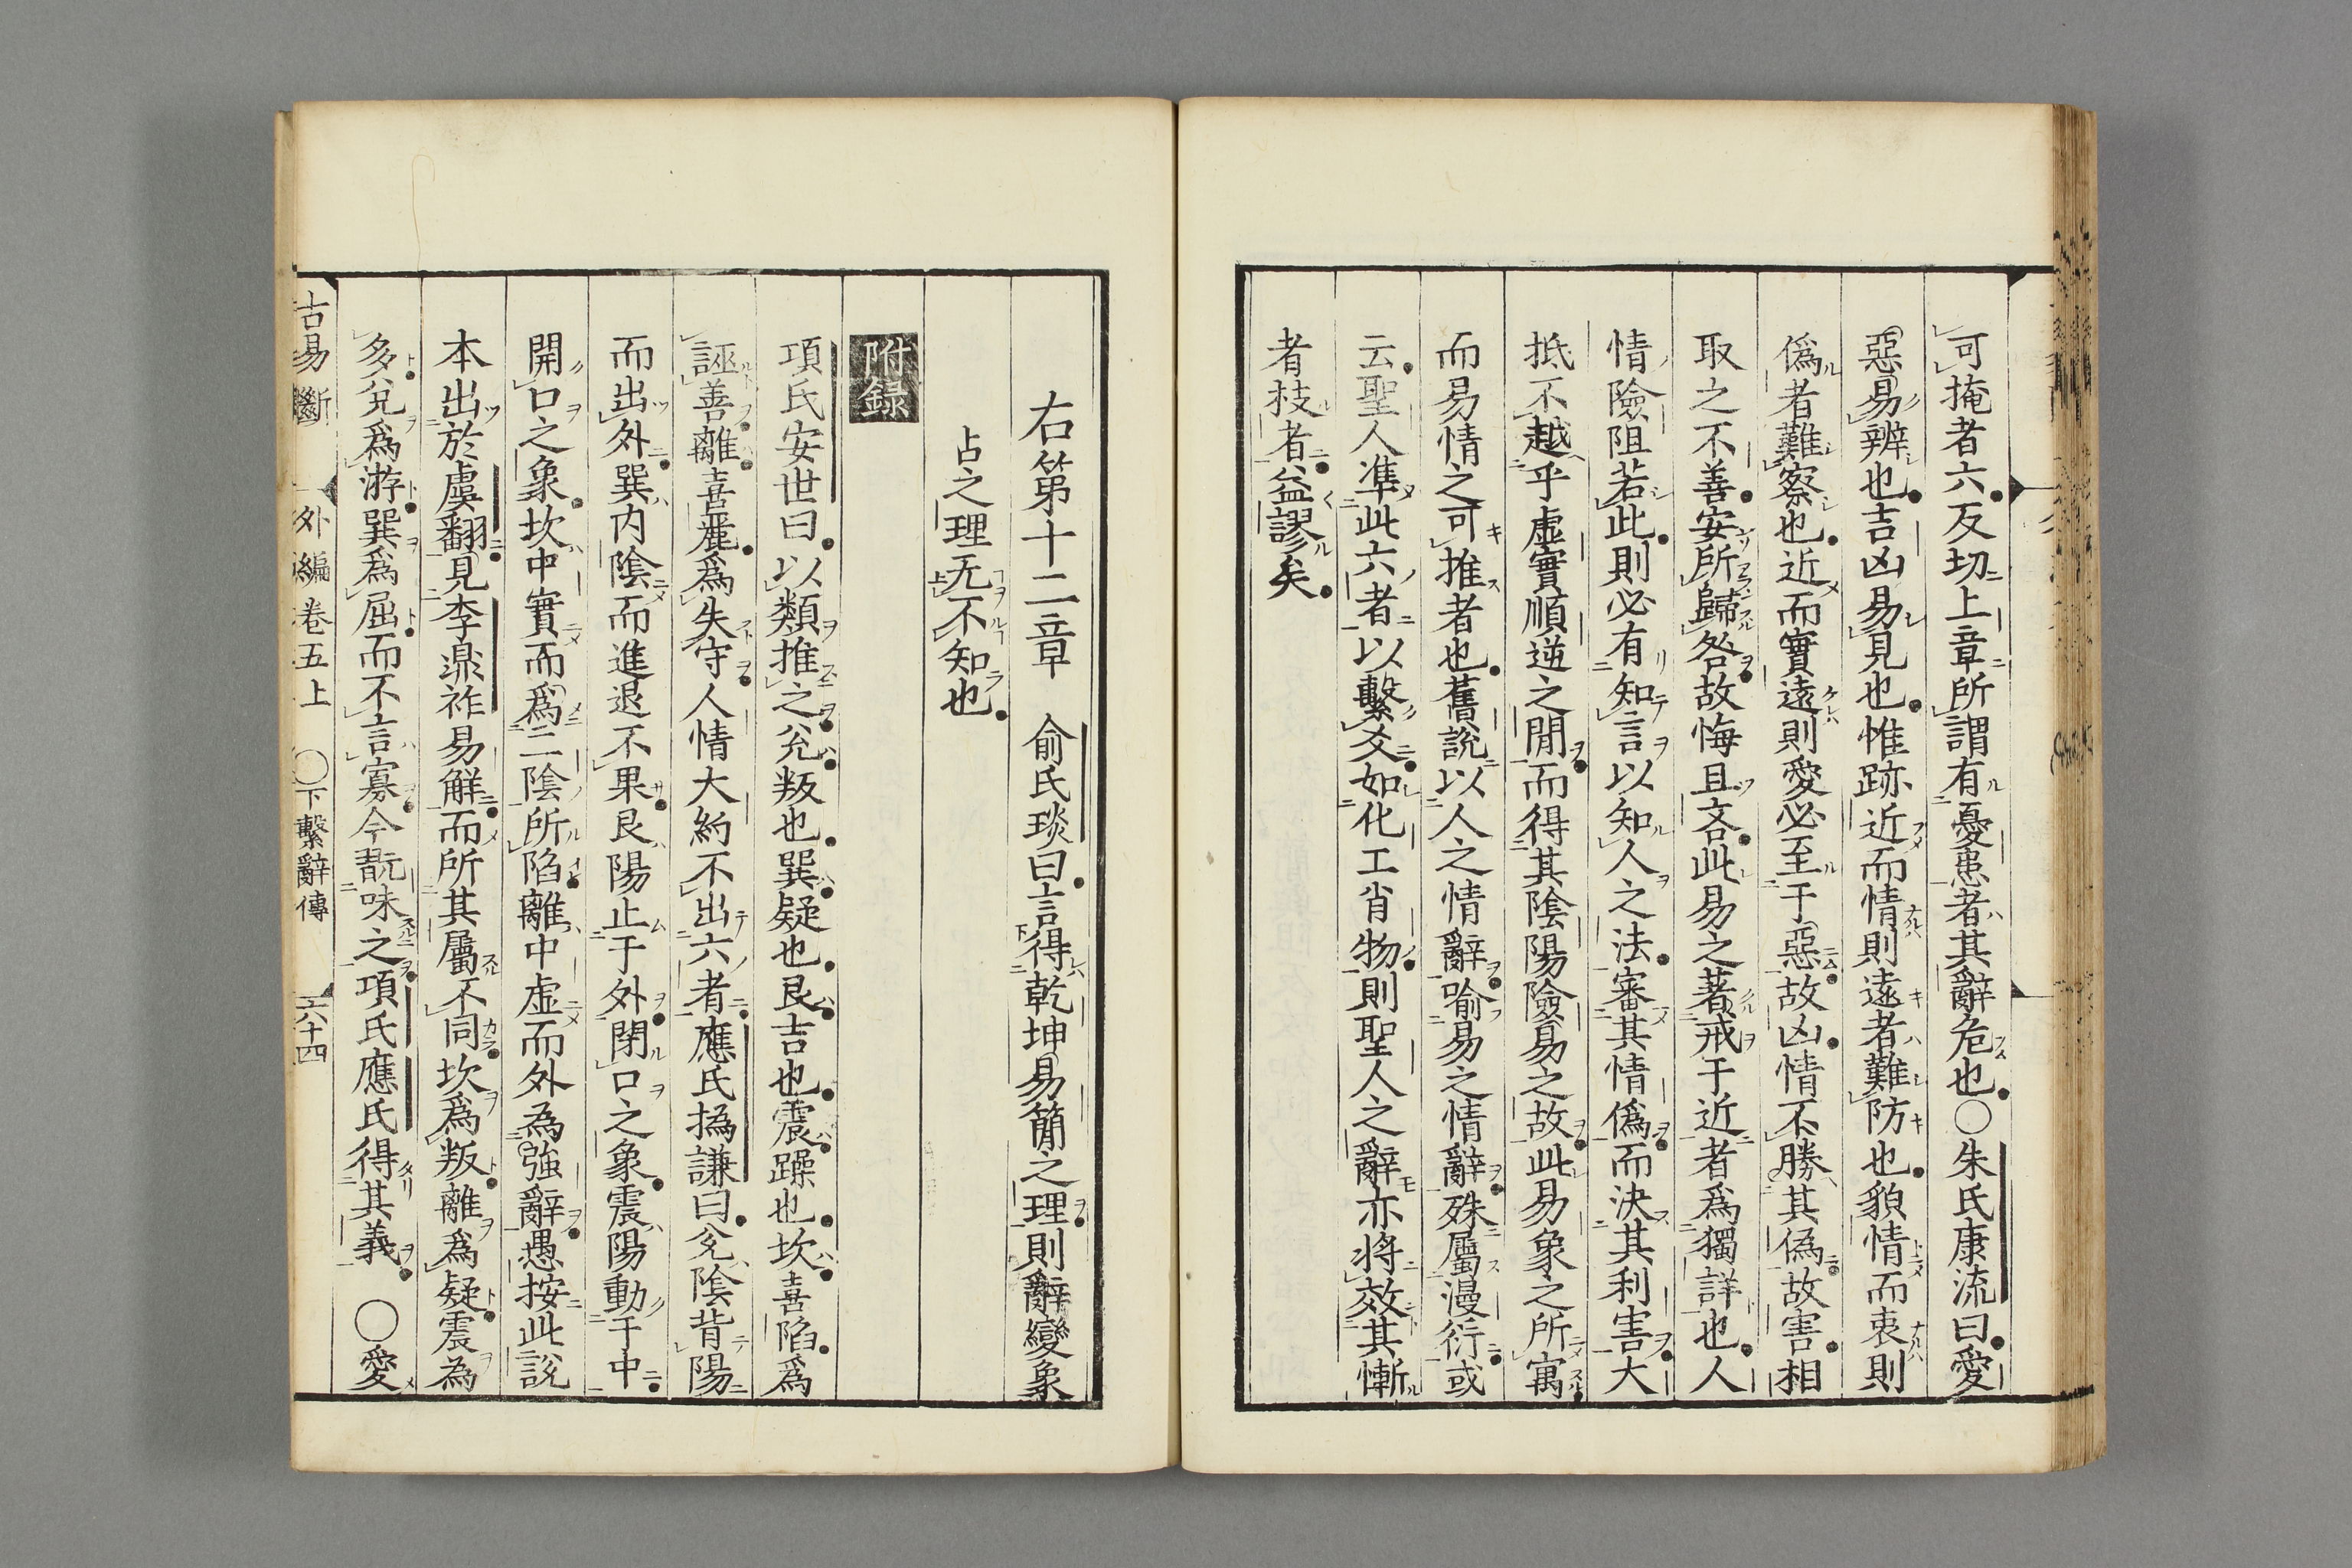 可掩者六反切上章所謂有憂患者其辭危也○朱氏康流曰愛
惡易辨也吉凶易見也惟跡近而情則遠者難防也貌情而衷則
僞者難察也近而實遠則愛必至于惡故凶情不勝其僞故害相
取之不善安所歸咎故悔且吝此易之著戒于近者爲獨詳也人
情險阻若此則必有知言以知人之法審其情僞而決其利害大
抵不越乎虛實順逆之閒而得其陰陽險易之故此易象之所寓
而易情之可推者也舊說以人之情辭喻易之情辭殊屬漫衍或
云聖人準此六者以繫爻如化工肖物則聖人之辭亦將效其慚
者枝者益謬矣
右第十二章　俞氏琰曰言得乾坤易簡之理則辭變象
占之理无不知也
附録
項氏安世曰以類推之兊叛也巽疑也艮吉也震躁也坎喜陷爲
誣善離喜麗爲失守人情大約不出六者應氏撝謙曰兊陰背陽
而出外巽内陰而進退不果艮陽止于外閉口之象震陽動于中
開口之象坎中實而爲二陰所陷離中虛而外為強辭愚按此說
本出於虞翻見李鼎祚易解而所其屬不同坎爲叛離爲疑震為
多兊爲游巽爲屈而不言寡今翫味之項氏應氏得其義　○愛
古易斷　外編卷五上　○下繫辭傳　六十四